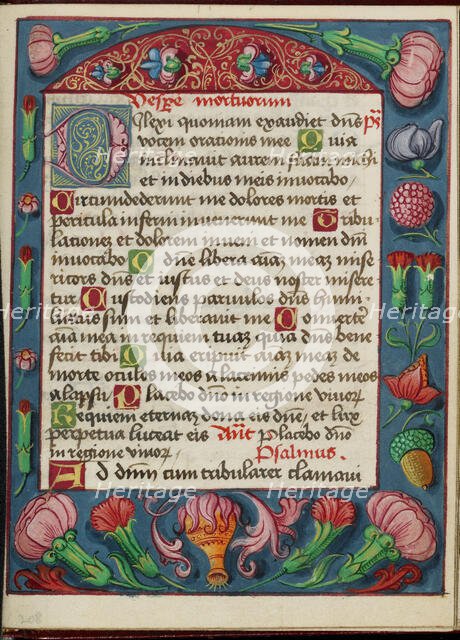 Vespe mortuorum
Dilexi quoniam exaudiet dns Ps
vocem orationis mee Quia
inclinavit aurem suam michi
et in diebus meis invocabo
Circumdederunt me dolores mortis et
pericula inferni invenerunt me Tribu
lationez et dolorem inveni et nomen dni
invocabo O dne libera aiaz meaz mise
ricors dns et iustus et deus noster misere
tur Custodiens parvulos dns humi
liatus sum et liberavit me Convertere
aia mea in requiem tuaz quia dns bene
fecit tibi Quia eripuit aiaz meaz de
morte oculos meos a lacrimis pedes meos
a lapsu Placebo dno in regione vivor
Requiem eternaz dona eis dne et lux
perpetua luceat eis Ant Placebo dno
in regione vivor Psalmus.
Ad dnm cum tribularer clamavi
208
Heritage
Heritage
Heritage
Heritage
Heritage
Heritage
Heritage